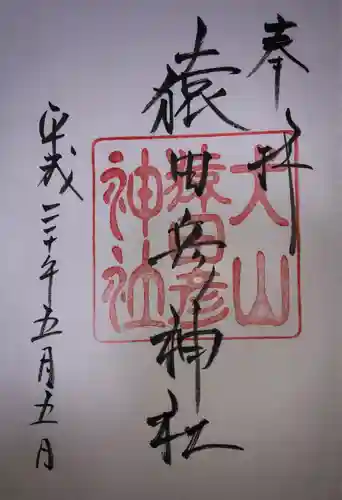 奉拝
大山
猿田彦
神社
猿田彦神社
平成二十年五月五日